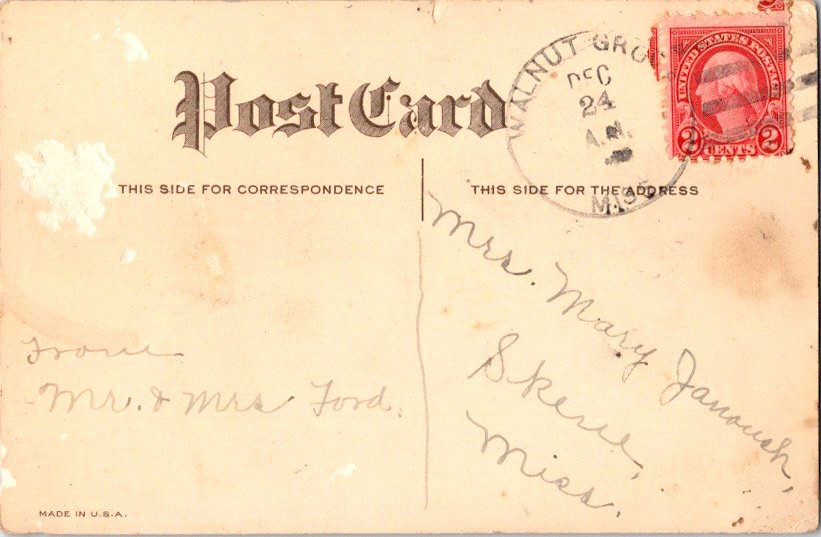 Post Card
WALNUT GRO
DEC
24
A.M.
MISS
UNITED STATES POSTAGE
2 CENTS 2
THIS SIDE FOR CORRESPONDENCE
THIS SIDE FOR THE ADDRESS
Mrs. Mary Janoush,
Skene,
Miss.
From
Mr. & Mrs Ford.
MADE IN U.S.A.